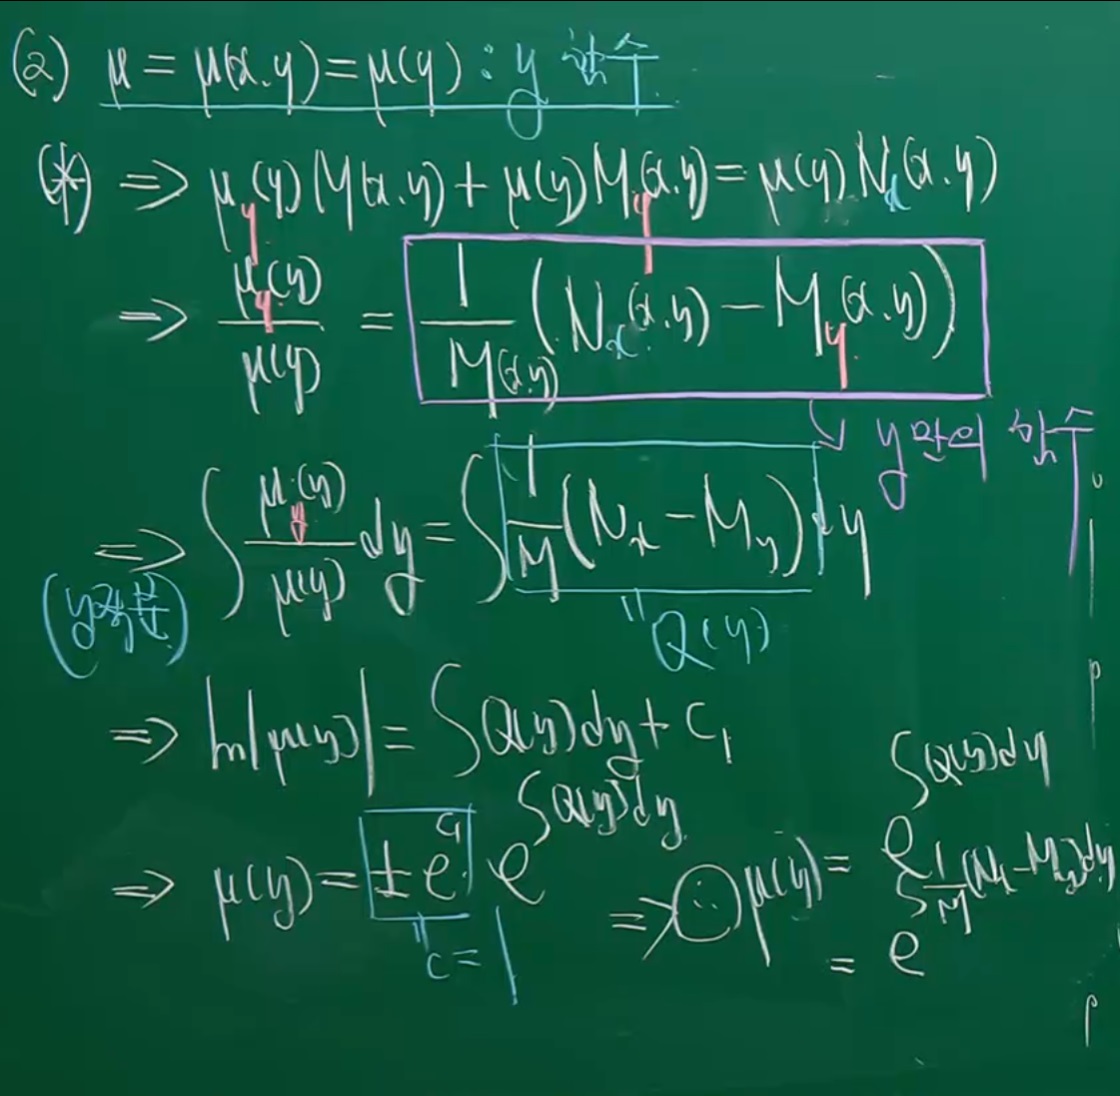 (2) μ = μ(x,y) = μ(y) : y 함수
(*) ⇒ μ_y(y) M(x,y) + μ(y) M_y(x,y) = μ(y) N_x(x,y)
⇒ μ_y(y) / μ(y) = 1/M(x,y) (N_x(x,y) − M_y(x,y))
↘ y만의 함수
⇒ ∫ μ_y(y)/μ(y) dy = ∫ 1/M (N_x − M_y) dy
" Q(y)
⇒ ln|μ(y)| = ∫Q(y)dy + C₁
⇒ μ(y) = ±e^{C₁} e^{∫Q(y)dy}
" C = 1
⇒ μ(y) = e^{∫Q(y)dy}
= e^{∫ 1/M (N_x − M_y)dy}